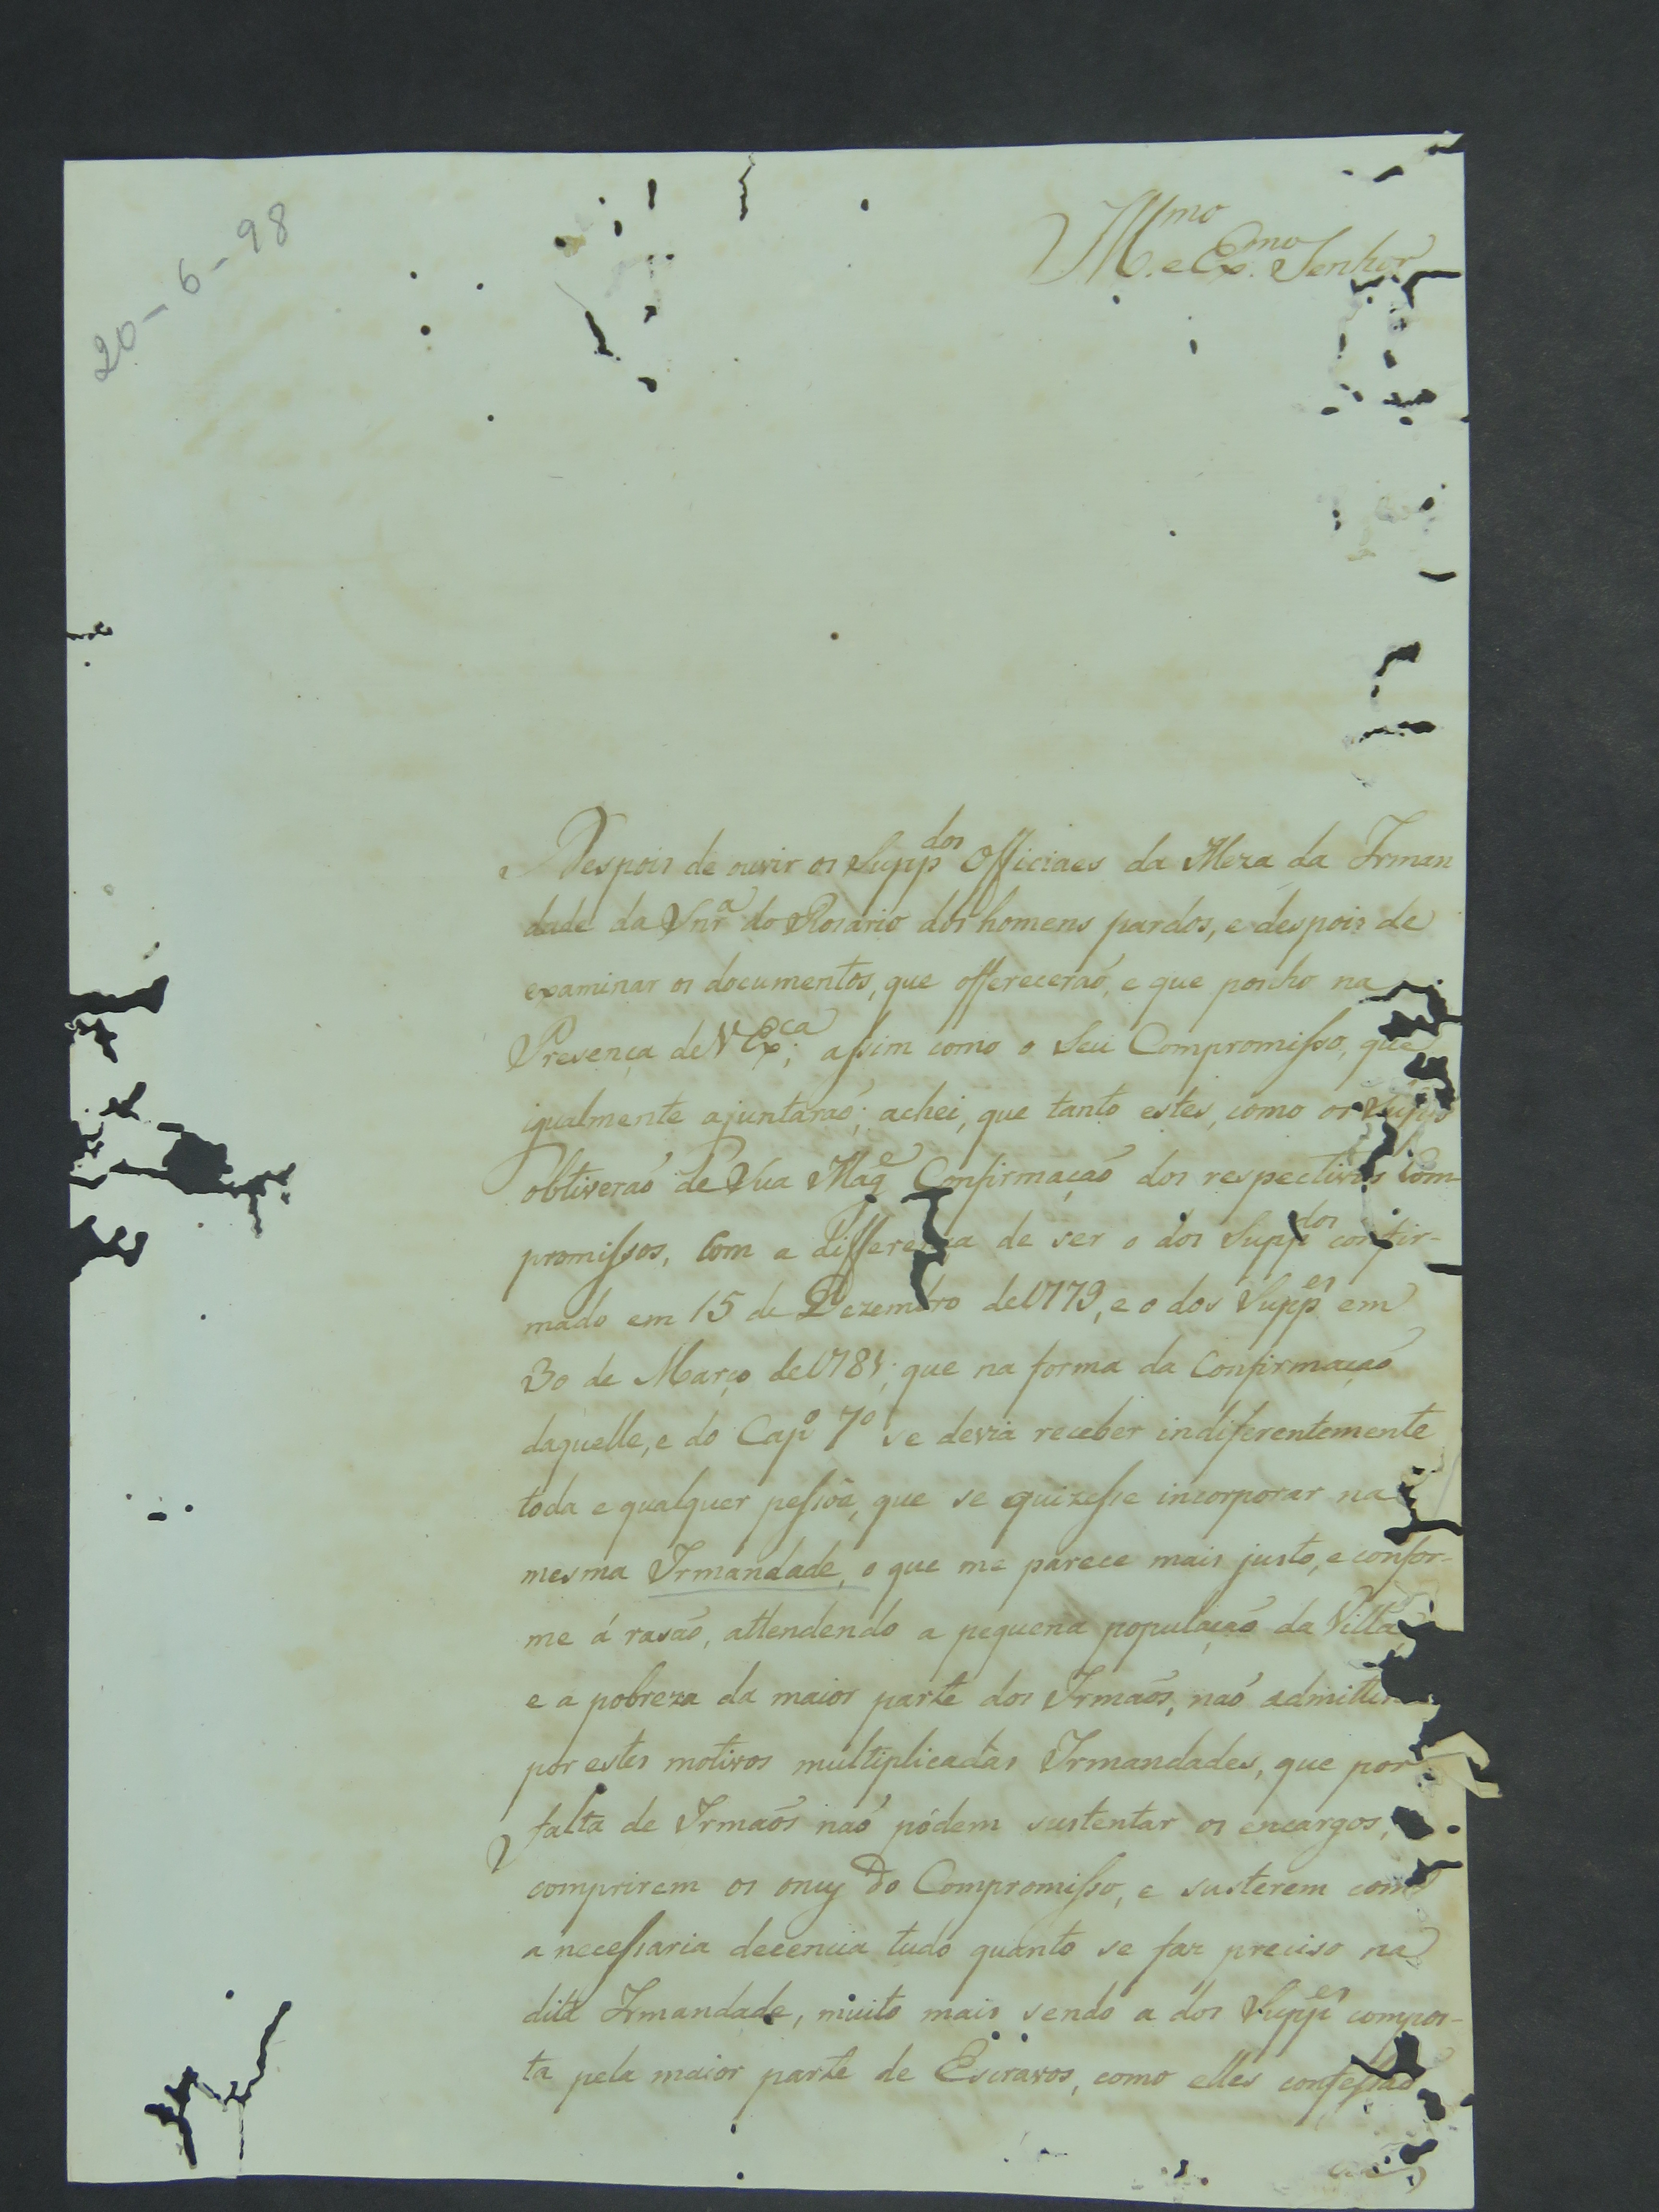 20-6-98
Illmo. e Exmo. Senhor
Despois de ouvir os Suppdos Officiaes da Meza da Irman
dade da Snra do Rosario dos homens pardos, e despois de
examinar os documentos, que offereceraõ, e que ponho na
Presença de V Exca; assim como o Seu Compromisso, que
igualmente ajuntaraõ; achei, que tanto estes, como os
obtiveraõ de Sua Mage Confirmaçaõ dos respectivos Com-
promissos, Com a differença de ser o dos Suppdos confir-
mado em 15 de Dezembro de 1779, e o dos Suppes em
30 de Março de que na forma da Confirmaçaõ
daquelle, e do Capo 7o se devia receber indiferentemente
toda e qualquer pessoa, que se quizesse incorporar na
mesma Irmandade, o que me parece mais justo, e confor-
me á rasaõ, attendendo a pequena populaçaõ da Villa,
e a pobreza da maior parte dos Irmaõs, naõ
por estes motivos multiplicadas Irmandades, que por
falta de Irmaõs naõ pódem sustentar os encargos,
comprirem os do Compromisso, e susterem com
a necessaria decencia tudo quanto se faz preciso na
dita Irmandade, muito mais sendo a dos Suppes compos-
ta pela maior parte de Escravos, como elles confessaõ